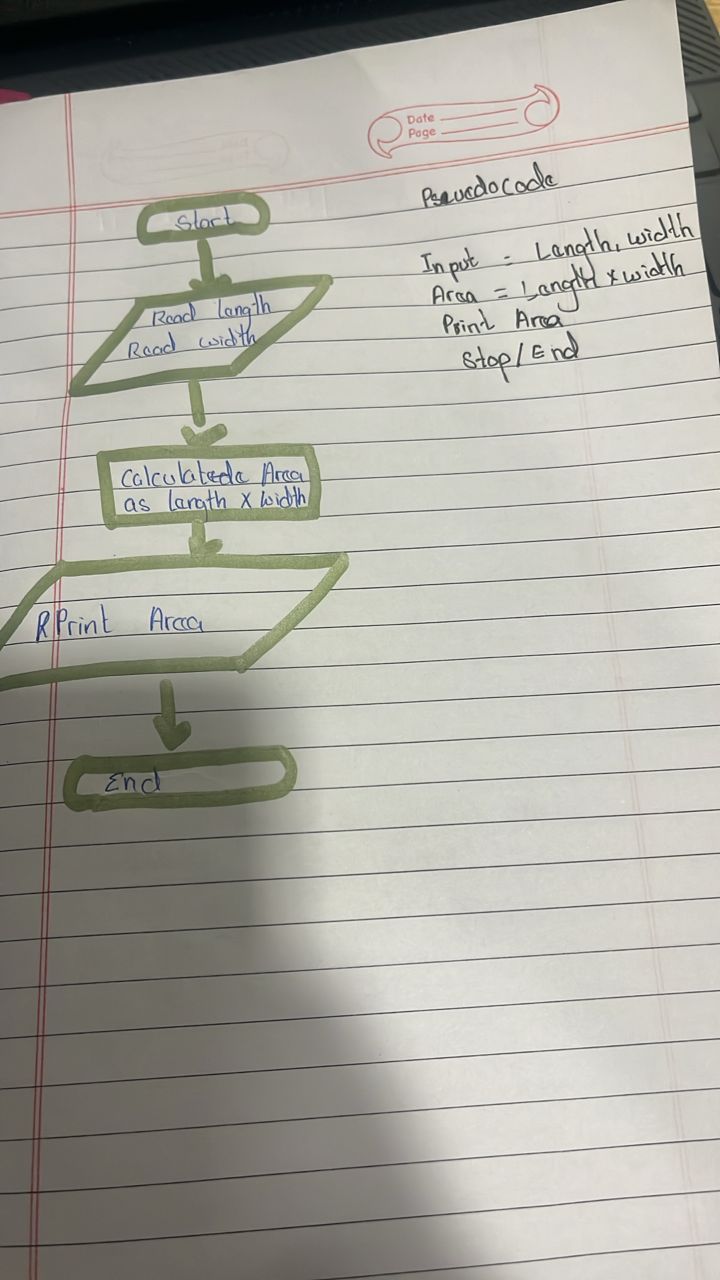 Date
Page
Start
Read length
Read width
Calculatede Area
as length X width
RPrint Area
End
Psuedocode
Input = Length, width
Area = Length x width
Print Area
Stop/End